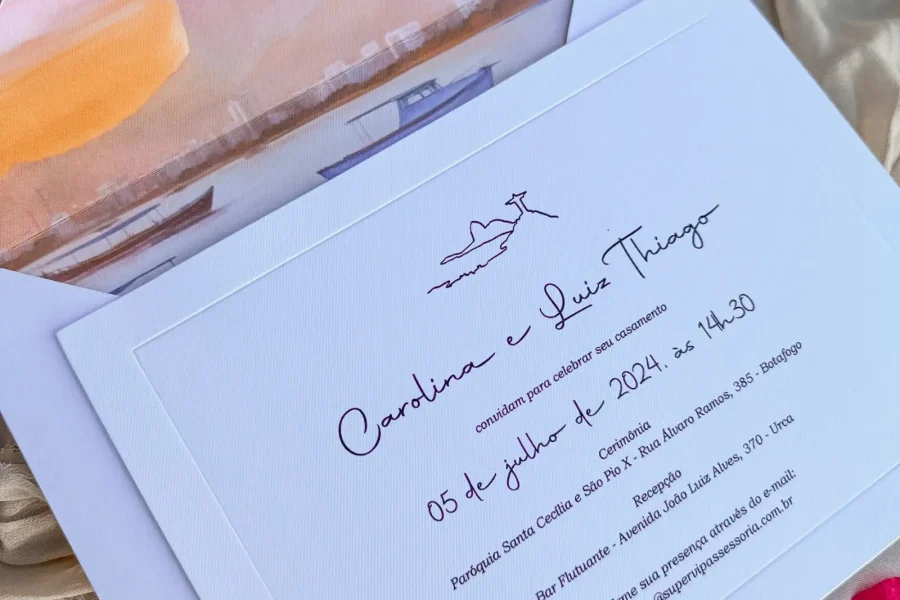 Carolina e Luiz Thiago
convidam para celebrar seu casamento
05 de julho de 2024. às 14h30
Cerimônia
Paróquia Santa Cecília e São Pio X - Rua Álvaro Ramos, 385 - Botafogo
Recepção
Bar Flutuante - Avenida João Luiz Alves, 370 - Urca
sua presença através do e-mail:
@supervipassessoria.com.br